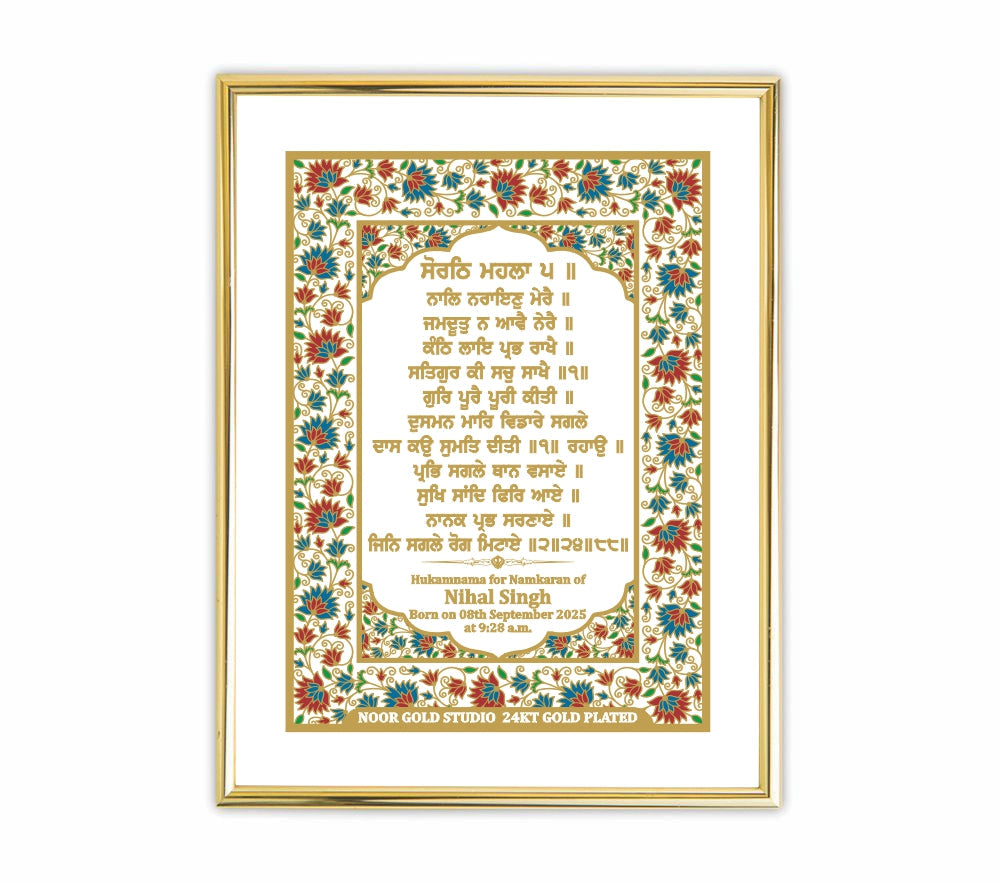 ਸੋਰਠਿ ਮਹਲਾ ੫ ॥
ਨਾਲਿ ਨਰਾਇਣੁ ਮੇਰੈ ॥
ਜਮਦੂਤੁ ਨ ਆਵੈ ਨੇਰੈ ॥
ਕੰਠਿ ਲਾਇ ਪ੍ਰਭ ਰਾਖੈ ॥
ਸਤਿਗੁਰ ਕੀ ਸਚੁ ਸਾਖੈ ॥੧॥
ਗੁਰਿ ਪੂਰੈ ਪੂਰੀ ਕੀਤੀ ॥
ਦੁਸਮਨ ਮਾਰਿ ਵਿਡਾਰੇ ਸਗਲੇ
ਦਾਸ ਕਉ ਸੁਮਤਿ ਦੀਤੀ ॥੧॥ ਰਹਾਉ ॥
ਪ੍ਰਭਿ ਸਗਲੇ ਥਾਨ ਵਸਾਏ ॥
ਸੁਖਿ ਸਾਂਦਿ ਫਿਰਿ ਆਏ ॥
ਨਾਨਕ ਪ੍ਰਭ ਸਰਣਾਏ ॥
ਜਿਨਿ ਸਗਲੇ ਰੋਗ ਮਿਟਾਏ ॥੨॥੨੪॥੮੮॥
Hukamnama for Namkaran of
Nihal Singh
Born on 08th September 2025
at 9:28 a.m.
NOOR GOLD STUDIO 24KT GOLD PLATED